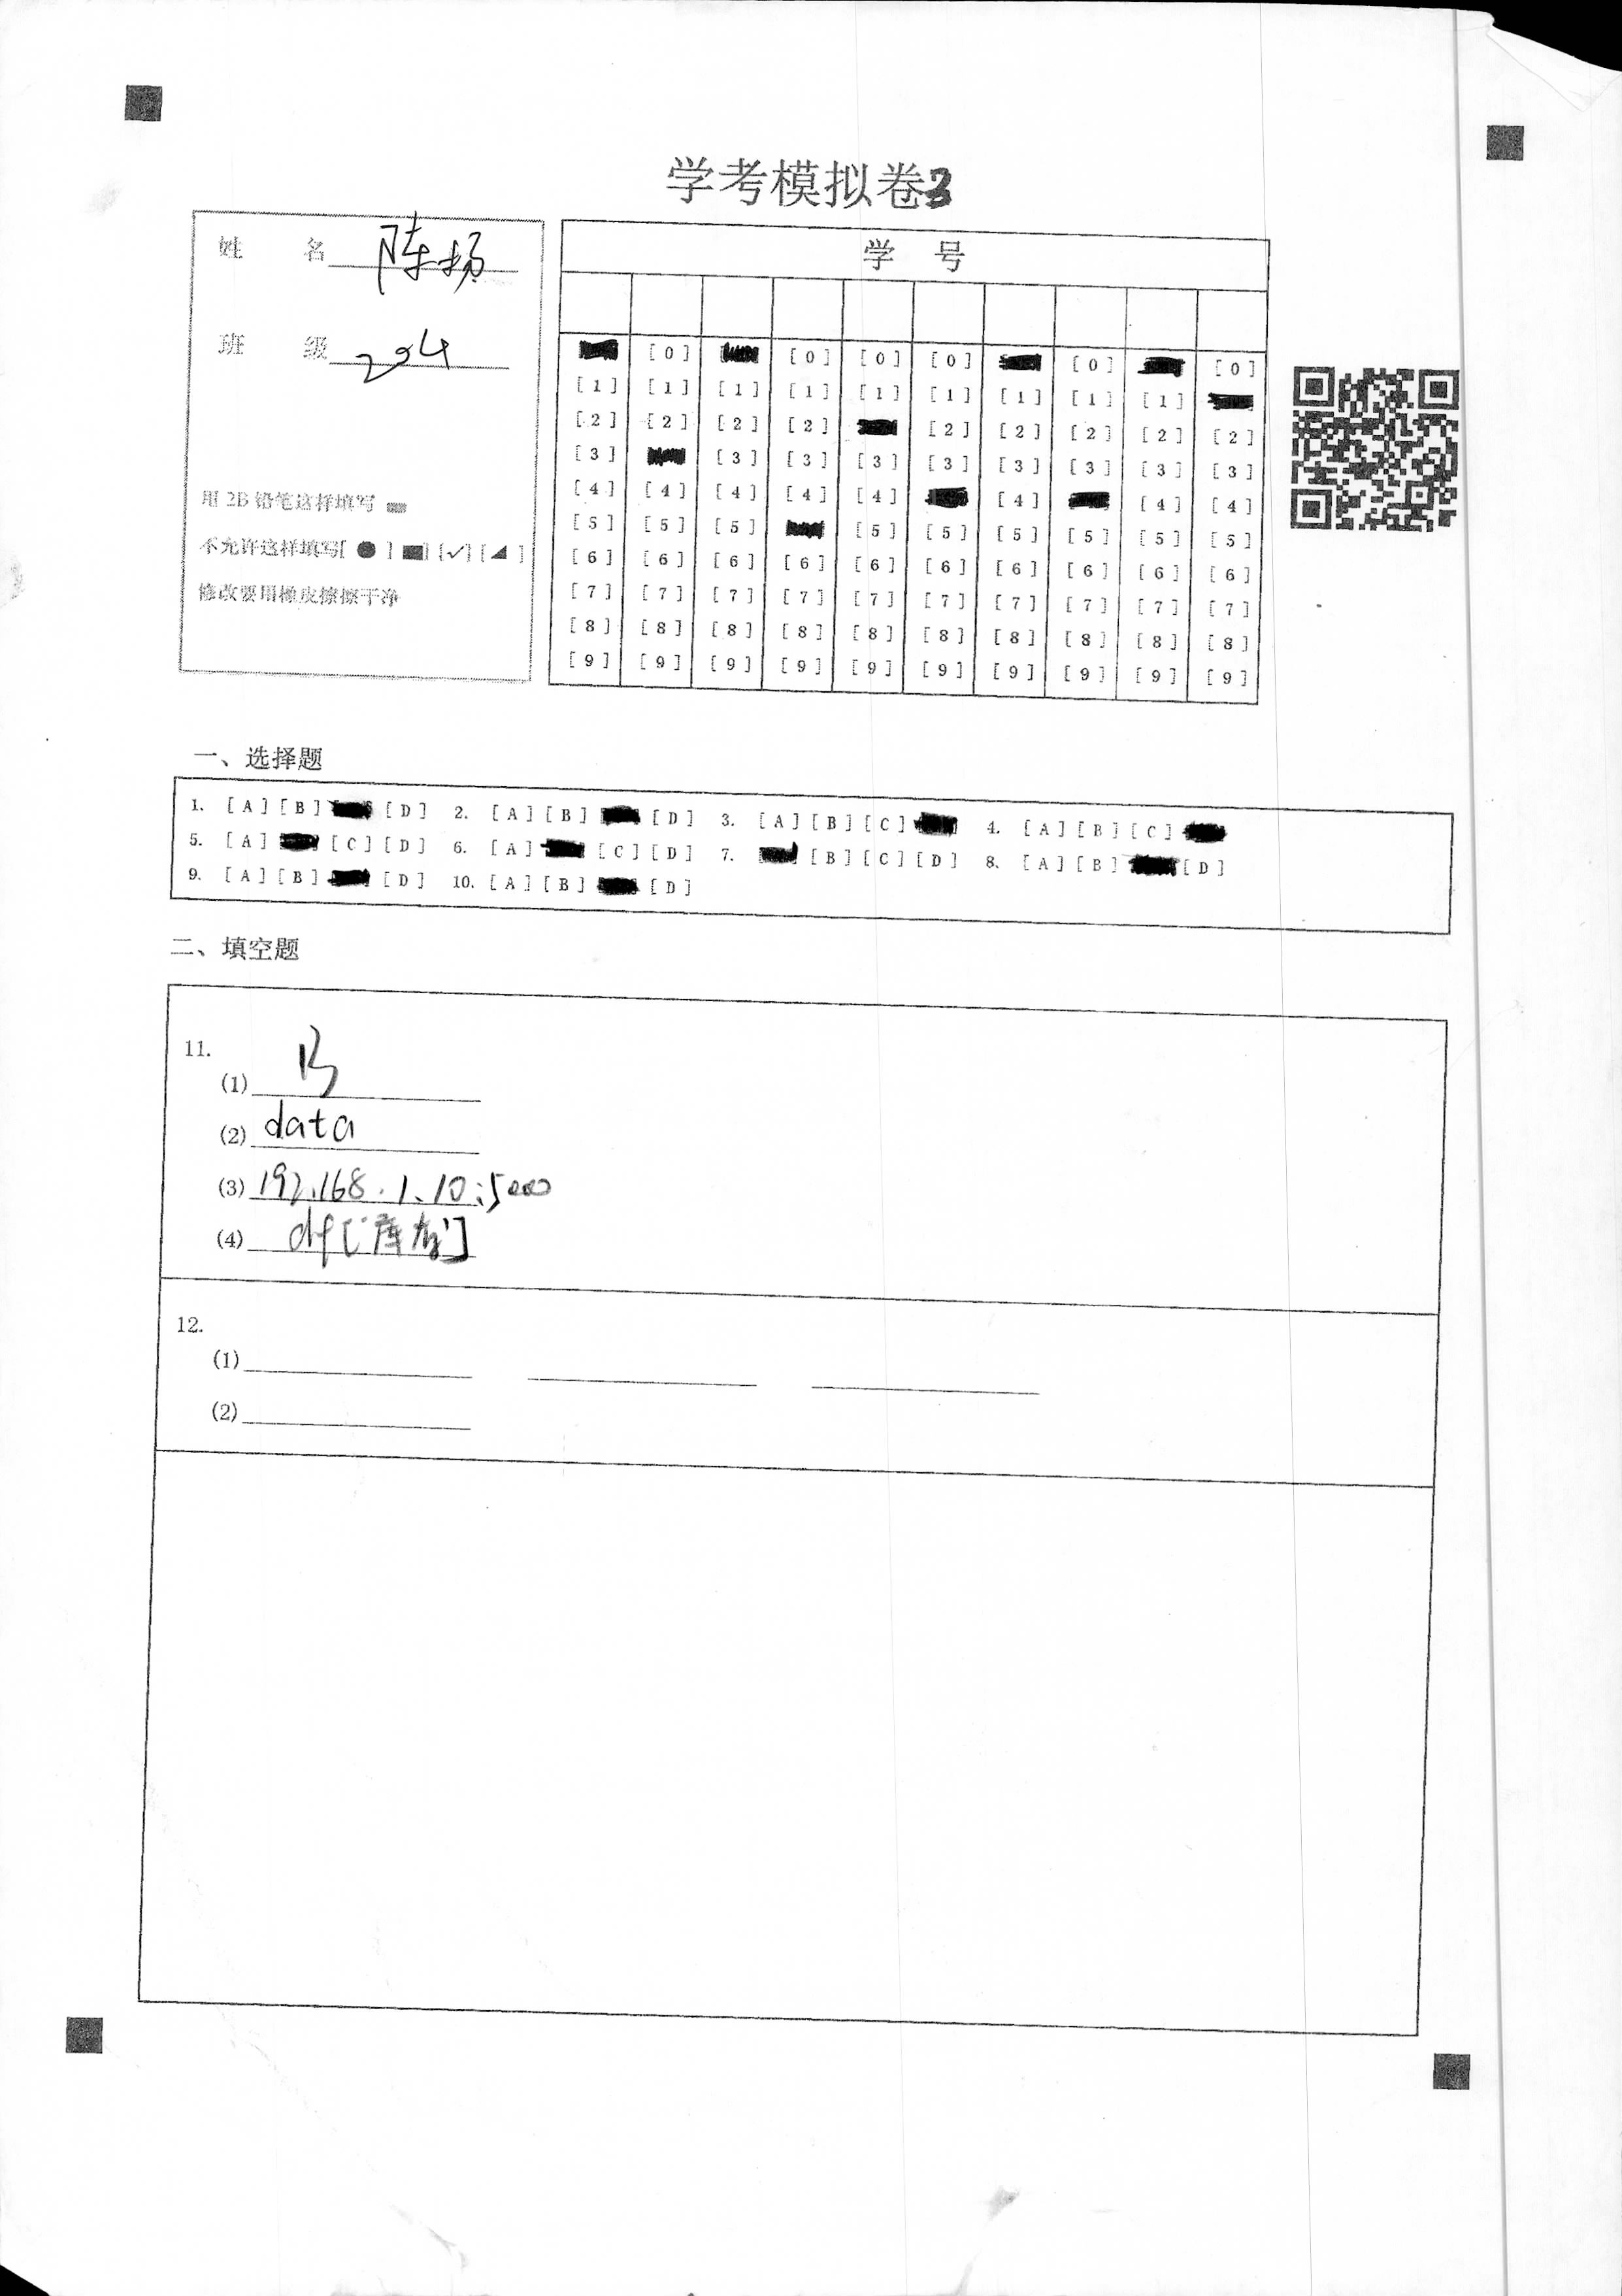 学考模拟卷3
姓 名 陈扬
班 级 204
用 2B 铅笔这样填写
不允许这样填写[ ● ] [■] [✓] [◢ ]
修改要用橡皮擦擦干净
学 号
[0] [0] [0] [0] [0] [0]
[1] [1] [1] [1] [1] [1] [1] [1] [1]
[2] [2] [2] [2] [2] [2] [2] [2] [2]
[3] [3] [3] [3] [3] [3] [3] [3] [3]
[4] [4] [4] [4] [4] [4] [4] [4]
[5] [5] [5] [5] [5] [5] [5] [5] [5]
[6] [6] [6] [6] [6] [6] [6] [6] [6] [6]
[7] [7] [7] [7] [7] [7] [7] [7] [7] [7]
[8] [8] [8] [8] [8] [8] [8] [8] [8] [8]
[9] [9] [9] [9] [9] [9] [9] [9] [9] [9]
一、选择题
1. [A] [B] [D] 2. [A] [B] [D] 3. [A] [B] [C] 4. [A] [B] [C]
5. [A] [C] [D] 6. [A] [C] [D] 7. [B] [C] [D] 8. [A] [B] [D]
9. [A] [B] [D] 10. [A] [B] [D]
二、填空题
11.
(1) B
(2) data
(3) 192.168.1.10:5000
(4) df['库存']
12.
(1)
(2)